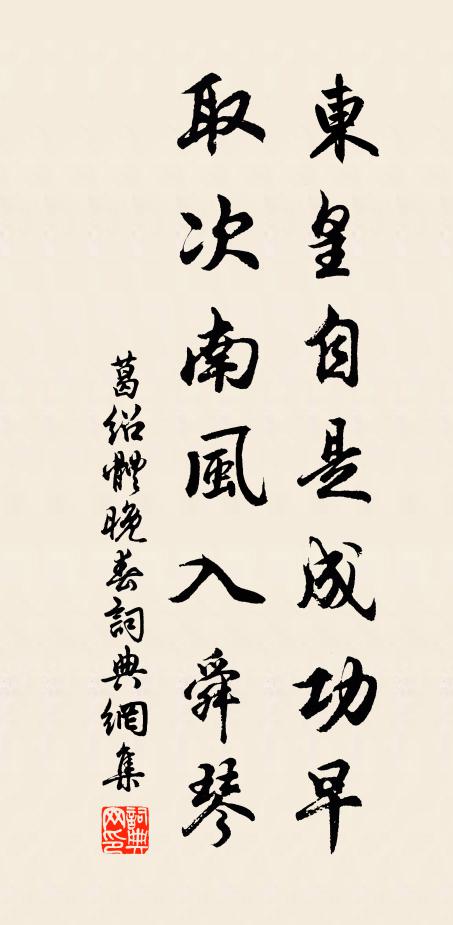 東皇自是成功早
取次南風入舜琴
葛紹體晚春詞典網集
詞典網印